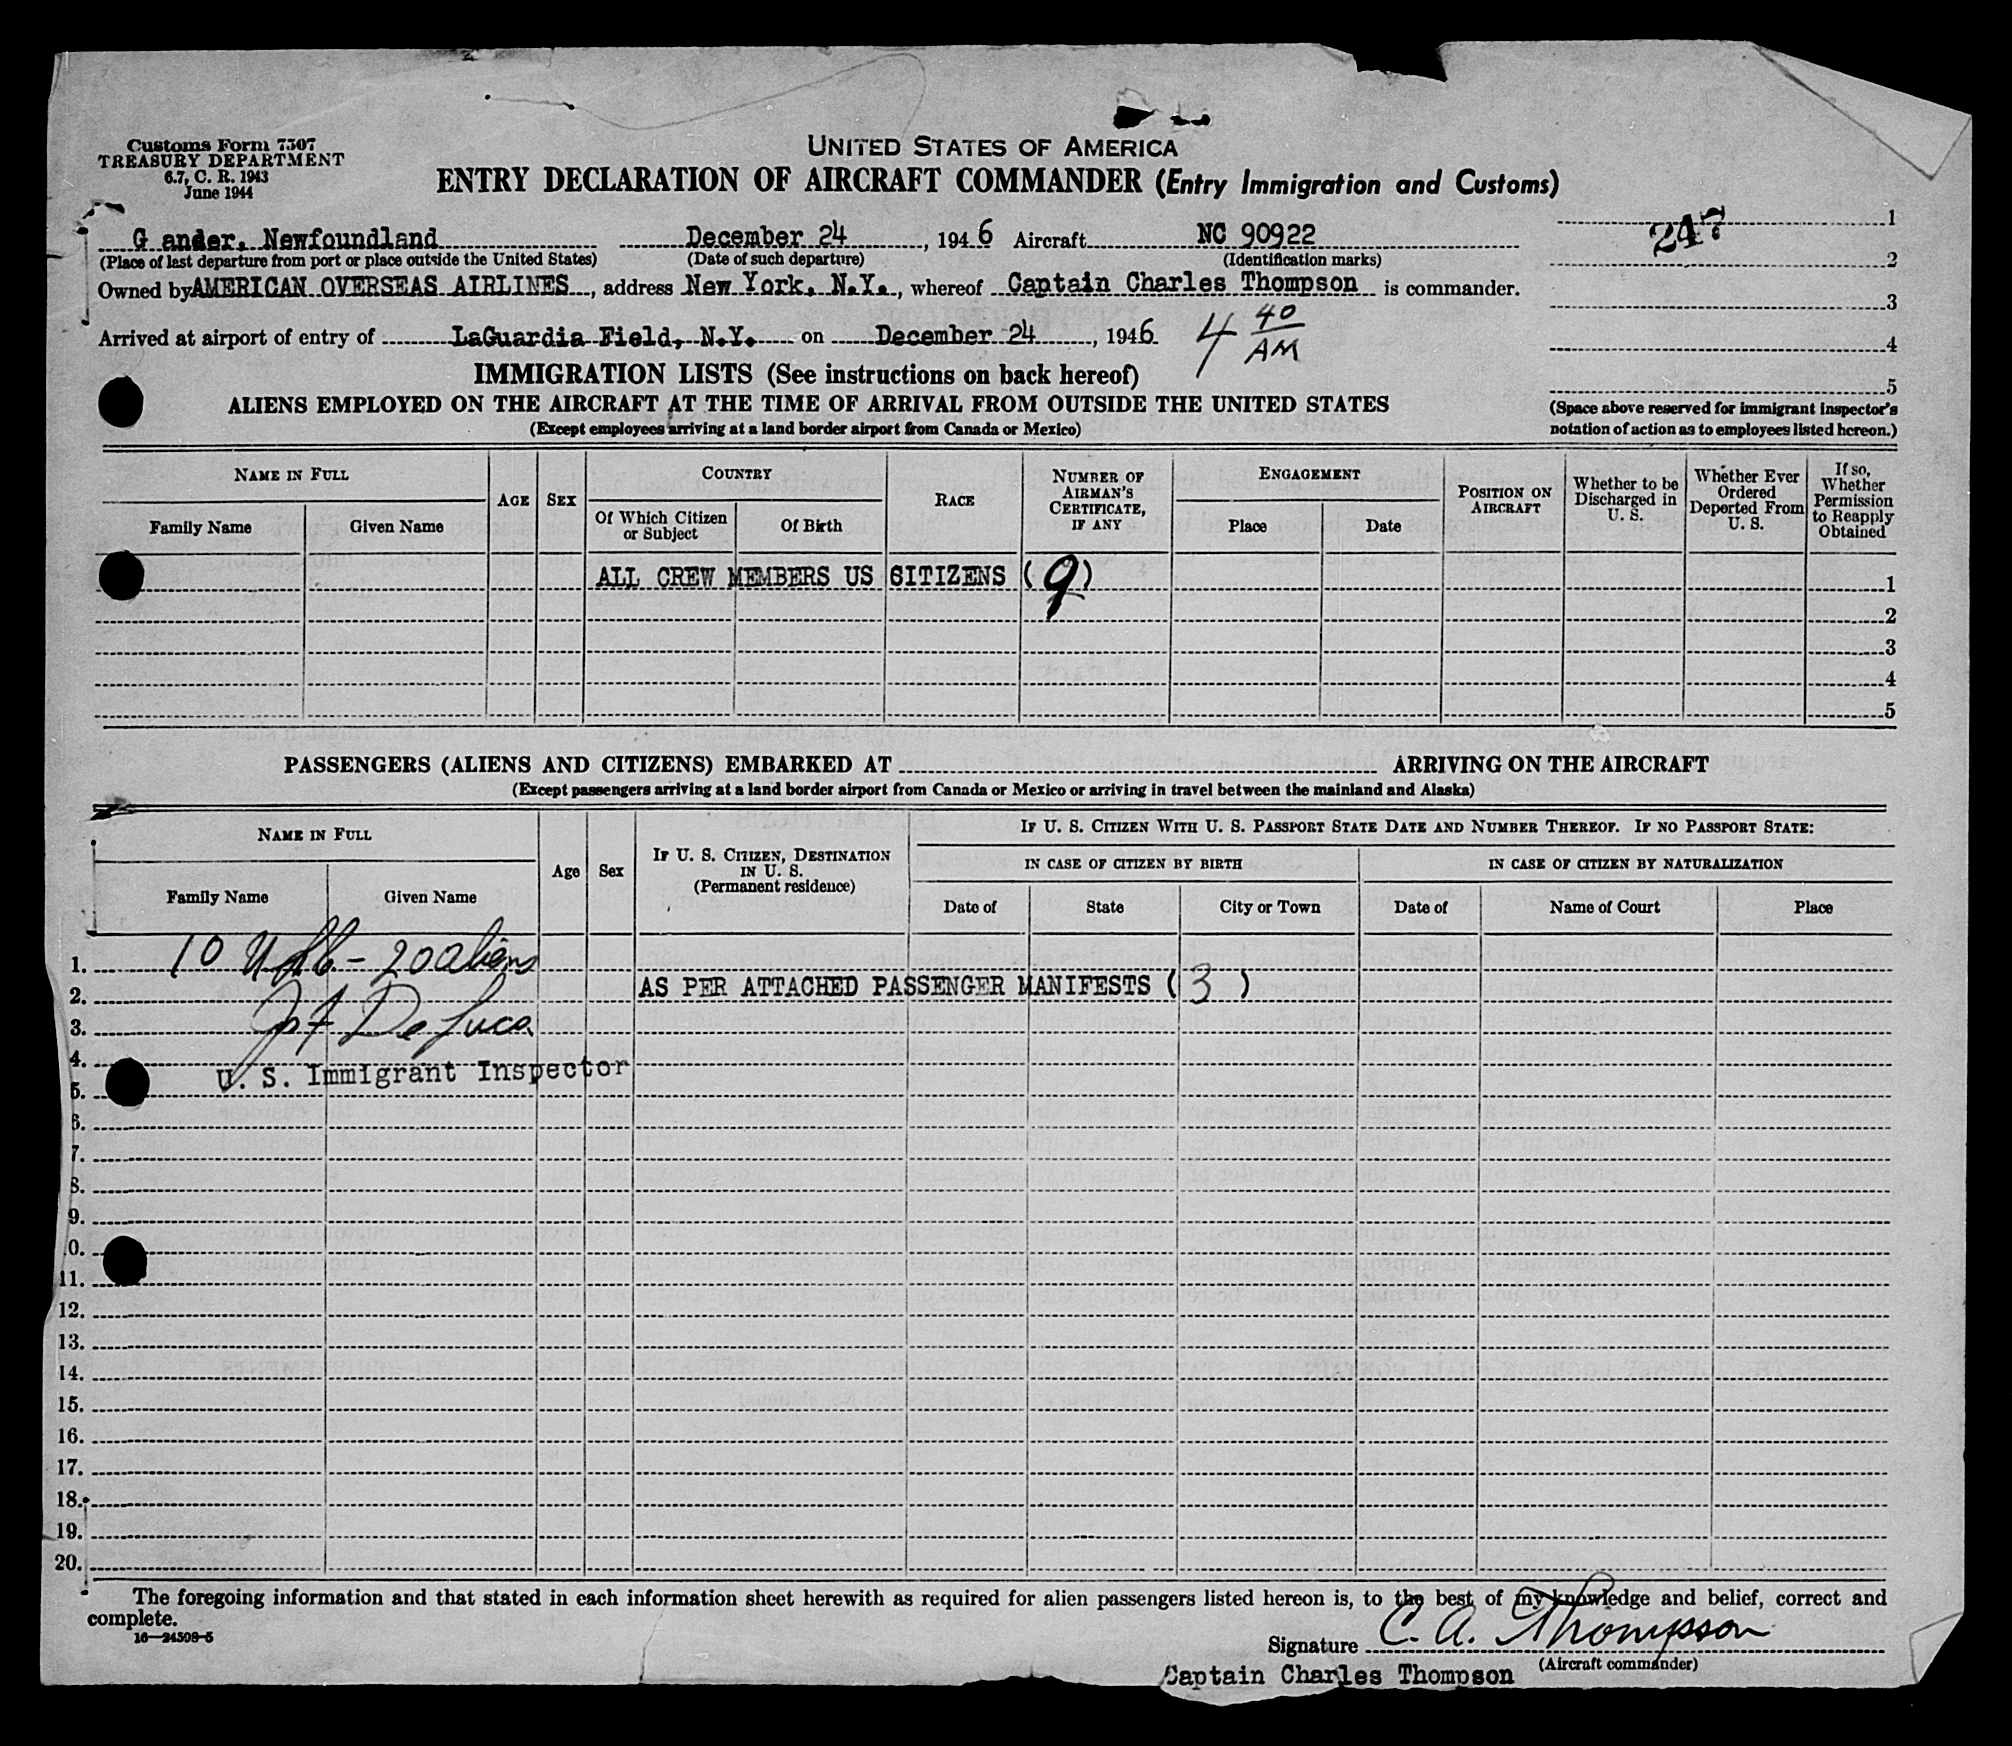 Customs Form 7507
TREASURY DEPARTMENT
6.7, C. R. 1943
June 1944
UNITED STATES OF AMERICA
ENTRY DECLARATION OF AIRCRAFT COMMANDER (Entry Immigration and Customs)
G ander, Newfoundland December 24, 1946 Aircraft NC 90922
(Place of last departure from port or place outside the United States) (Date of such departure) (Identification marks)
Owned by AMERICAN OVERSEAS AIRLINES, address New York, N.Y., whereof Captain Charles Thompson is commander.
Arrived at airport of entry of LaGuardia Field, N.Y. on December 24, 1946 4 40 AM
247
1
2
3
4
5
(Space above reserved for immigrant inspector's
notation of action as to employees listed hereon.)
IMMIGRATION LISTS (See instructions on back hereof)
ALIENS EMPLOYED ON THE AIRCRAFT AT THE TIME OF ARRIVAL FROM OUTSIDE THE UNITED STATES
(Except employees arriving at a land border airport from Canada or Mexico)
NAME IN FULL
Family Name Given Name
AGE SEX
COUNTRY
Of Which Citizen or Subject Of Birth
RACE
NUMBER OF AIRMAN'S CERTIFICATE, IF ANY
ENGAGEMENT
Place Date
POSITION ON AIRCRAFT
Whether to be Discharged in U. S.
Whether Ever Ordered Deported From U. S.
If so, Whether Permission to Reapply Obtained
ALL CREW MEMBERS US CITIZENS (9) 1
2
3
4
5
PASSENGERS (ALIENS AND CITIZENS) EMBARKED AT ARRIVING ON THE AIRCRAFT
(Except passengers arriving at a land border airport from Canada or Mexico or arriving in travel between the mainland and Alaska)
NAME IN FULL
Family Name Given Name
Age Sex
IF U. S. CITIZEN, DESTINATION IN U. S. (Permanent residence)
IF U. S. CITIZEN WITH U. S. PASSPORT STATE DATE AND NUMBER THEREOF. IF NO PASSPORT STATE:
IN CASE OF CITIZEN BY BIRTH IN CASE OF CITIZEN BY NATURALIZATION
Date of State City or Town Date of Name of Court Place
1. 10 - 20 aliens
2. AS PER ATTACHED PASSENGER MANIFESTS ( 3 )
3. De Luca
4.
U. S. Immigrant Inspector
5.
6.
7.
8.
9.
0.
11.
12.
13.
14.
15.
16.
17.
18.
19.
20.
The foregoing information and that stated in each information sheet herewith as required for alien passengers listed hereon is, to the best of my knowledge and belief, correct and
complete.
16—24508-5
Signature C. A. Thompson
(Aircraft commander)
Captain Charles Thompson